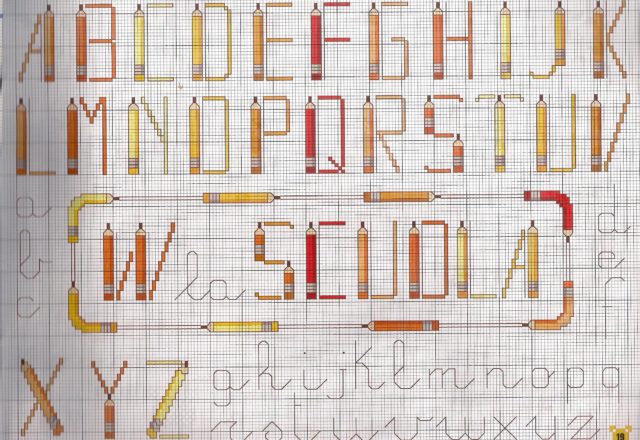 A B C D E F G H I J K
L M N O P Q R S T U V
a
b
c
W la SCUOLA
d
e
f
X Y Z
g h i j k l m n o p q
r s t u v w x y z
19